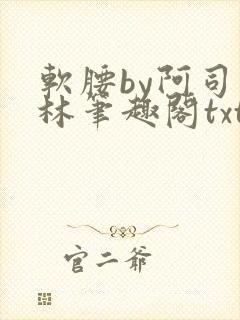 軟腰by阿司
林筆趣閣txt
官二爺